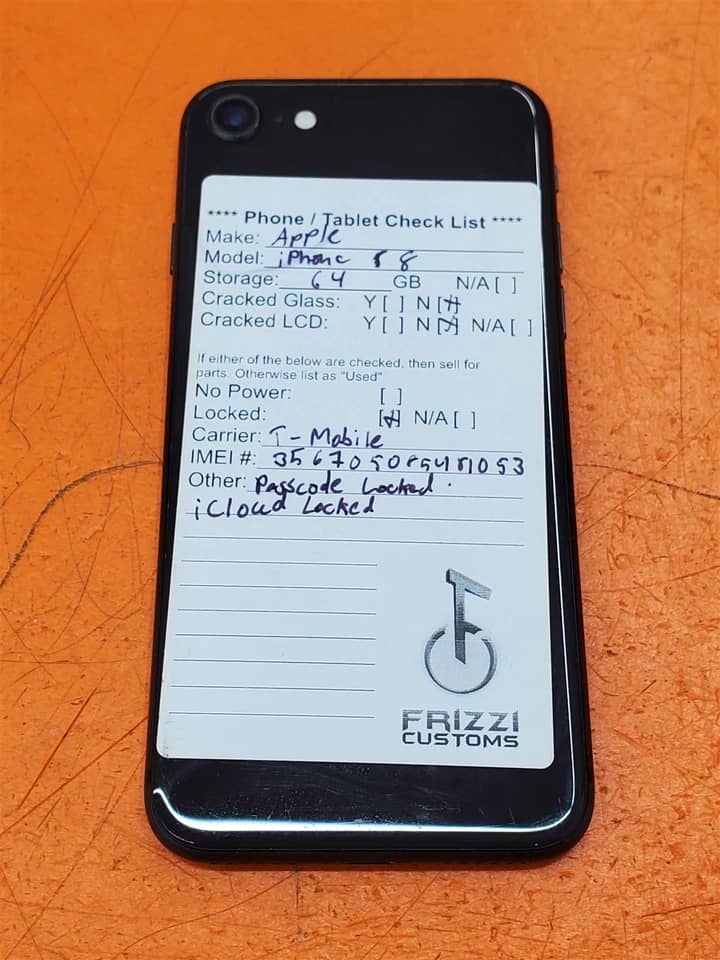 **** Phone / Tablet Check List ****
Make: Apple
Model: iPhone 8
Storage: 64 GB N/A[ ]
Cracked Glass: Y[ ] N[X]
Cracked LCD: Y[ ] N[X] N/A[ ]
If either of the below are checked, then sell for
parts. Otherwise list as "Used"
No Power: [ ]
Locked: [X] N/A[ ]
Carrier: T-Mobile
IMEI #:
Other: Passcode Locked.
iCloud Locked
FRIZZI
CUSTOMS